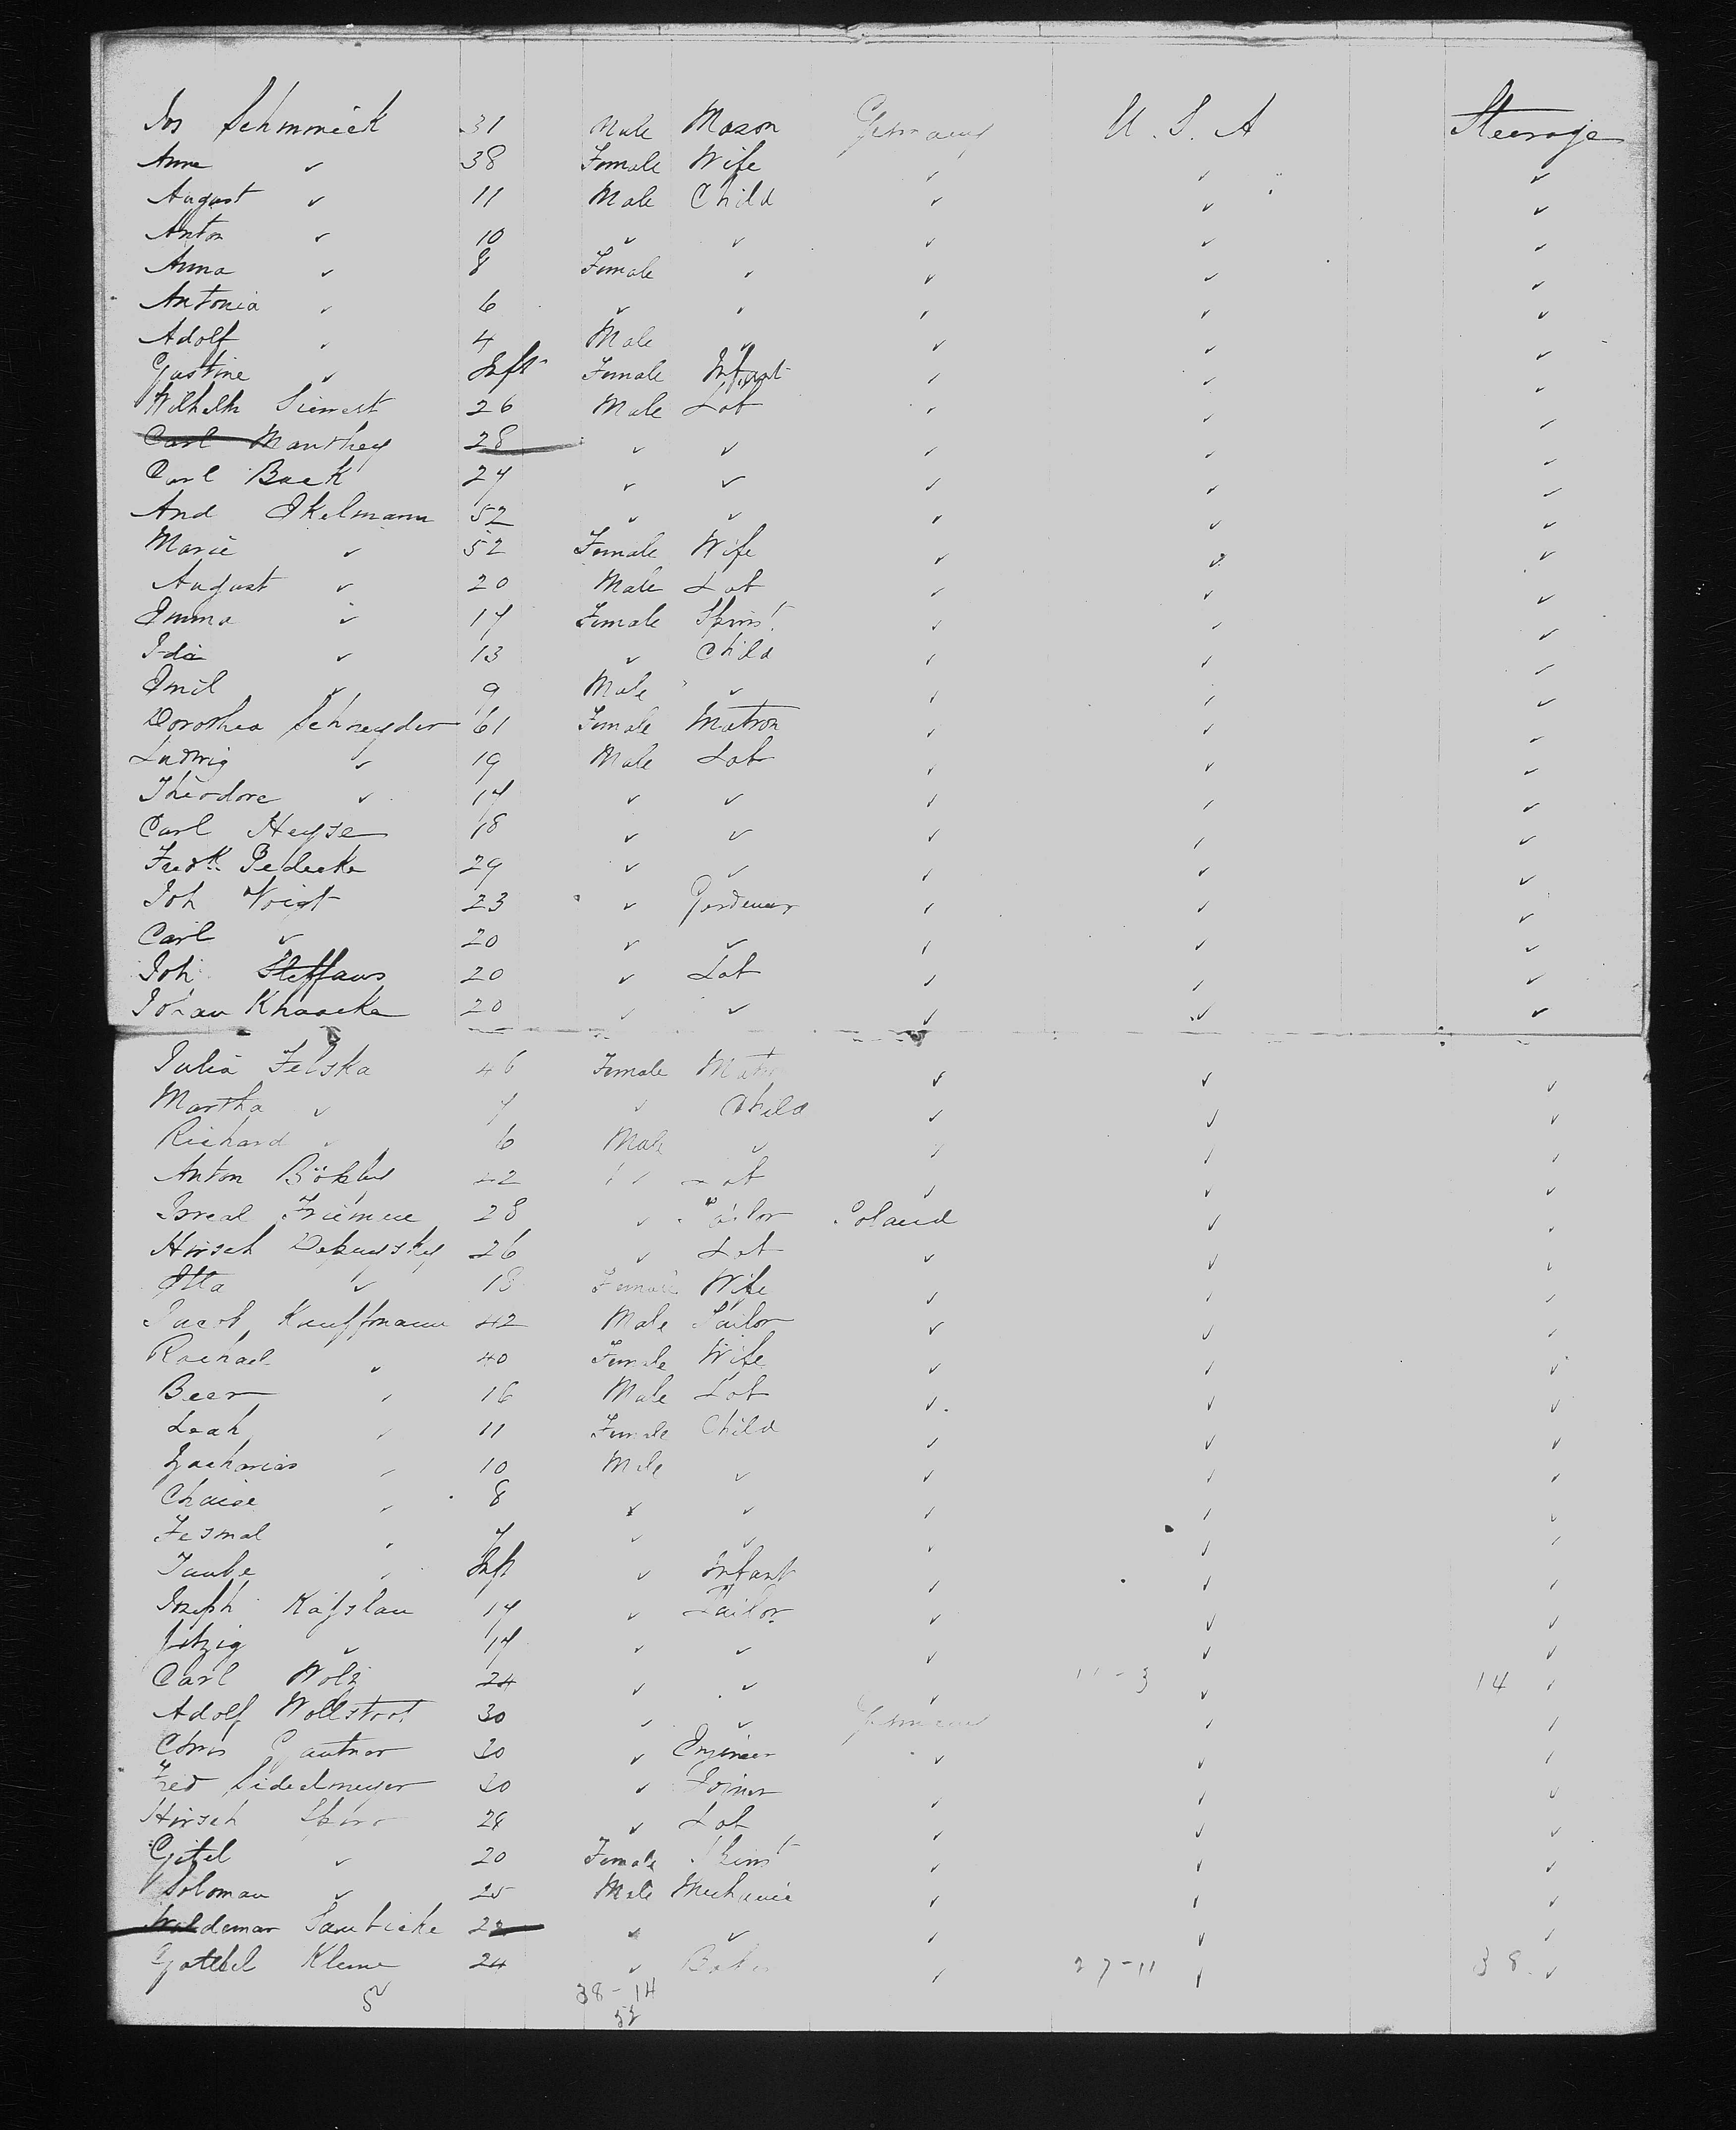 Jos Schmmeck 31 Male Mason Germany U. S. A Steerage
Anne ✓ 38 Female Wife ✓ ✓ ✓
August ✓ 11 Male Child ✓ ✓ ✓
Anton ✓ 10 ✓ ✓ ✓ ✓ ✓
Anna ✓ 8 Female ✓ ✓ ✓ ✓
Antonia ✓ 6 ✓ ✓ ✓ ✓ ✓
Adolf ✓ 4 Male ✓ ✓ ✓ ✓
Gustine ✓ Inft Female Infant ✓ ✓ ✓
Wilhelm Siewert 26 Male Lab ✓ ✓ ✓
Carl Manthey 28 ✓ ✓ ✓ ✓ ✓
Carl Back 27 ✓ ✓ ✓ ✓ ✓
And Ikelmann 52 ✓ ✓ ✓ ✓ ✓
Marie ✓ 52 Female Wife ✓ ✓ ✓
August ✓ 20 Male Lab ✓ ✓ ✓
Emma ✓ 17 Female Spinst ✓ ✓ ✓
Ida ✓ 13 ✓ Child ✓ ✓ ✓
Emil ✓ 9 Male ✓ ✓ ✓ ✓
Dorothea Schneyder 61 Female Matron ✓ ✓ ✓
Ludwig ✓ 19 Male Lab ✓ ✓ ✓
Theodore ✓ 17 ✓ ✓ ✓ ✓ ✓
Carl Heyse 18 ✓ ✓ ✓ ✓ ✓
Fredk Gedecke 29 ✓ ✓ ✓ ✓ ✓
Joh Voigt 23 ✓ Gardener ✓ ✓ ✓
Carl ✓ 20 ✓ ✓ ✓ ✓ ✓
Joh Steffans 20 ✓ Lab ✓ ✓ ✓
Johan Knaacke 20 ✓ ✓ ✓ ✓ ✓
Julia Felska 46 Female Matron ✓ ✓ ✓
Martha ✓ 7 ✓ Child ✓ ✓ ✓
Richard ✓ 6 Male ✓ ✓ ✓ ✓
Anton 42 ✓ Lab ✓ ✓ ✓
Isreal 28 ✓ Tailor Poland ✓ ✓
Hirsch 26 ✓ Lab ✓ ✓ ✓
Etta ✓ 18 Female Wife ✓ ✓ ✓
Jacob Kauffmann 42 Male Tailor ✓ ✓ ✓
Rachael ✓ 40 Female Wife ✓ ✓ ✓
Beer ✓ 16 Male Lab ✓ ✓ ✓
Leah ✓ 11 Female Child ✓ ✓ ✓
Zacharias ✓ 10 Male ✓ ✓ ✓ ✓
Chaise ✓ 8 ✓ ✓ ✓ ✓ ✓
Fesmal ✓ 7 ✓ ✓ ✓ ✓ ✓
Taube ✓ Inft ✓ Infant ✓ ✓ ✓
Joseph 17 ✓ Tailor ✓ ✓ ✓
Jtzig ✓ 17 ✓ ✓ ✓ ✓ ✓
Carl Wolz 24 ✓ ✓ ✓ 11-3 ✓ 14 ✓
Adolf 30 ✓ ✓ Germany ✓ ✓
Chris Gautner 30 ✓ Engineer ✓ ✓ ✓
Fred Sidelmeyer 30 ✓ Joiner ✓ ✓ ✓
Hirsch Spiro 28 ✓ Lab ✓ ✓ ✓
Gitel ✓ 20 Female Spinst ✓ ✓ ✓
Soloman ✓ 25 Male Mechanic ✓ ✓ ✓
Waldemar 22 ✓ ✓ ✓ ✓ ✓
Gottlieb Kleme 24 ✓ Baker ✓ 27-11 ✓ 38 ✓
38-14
52